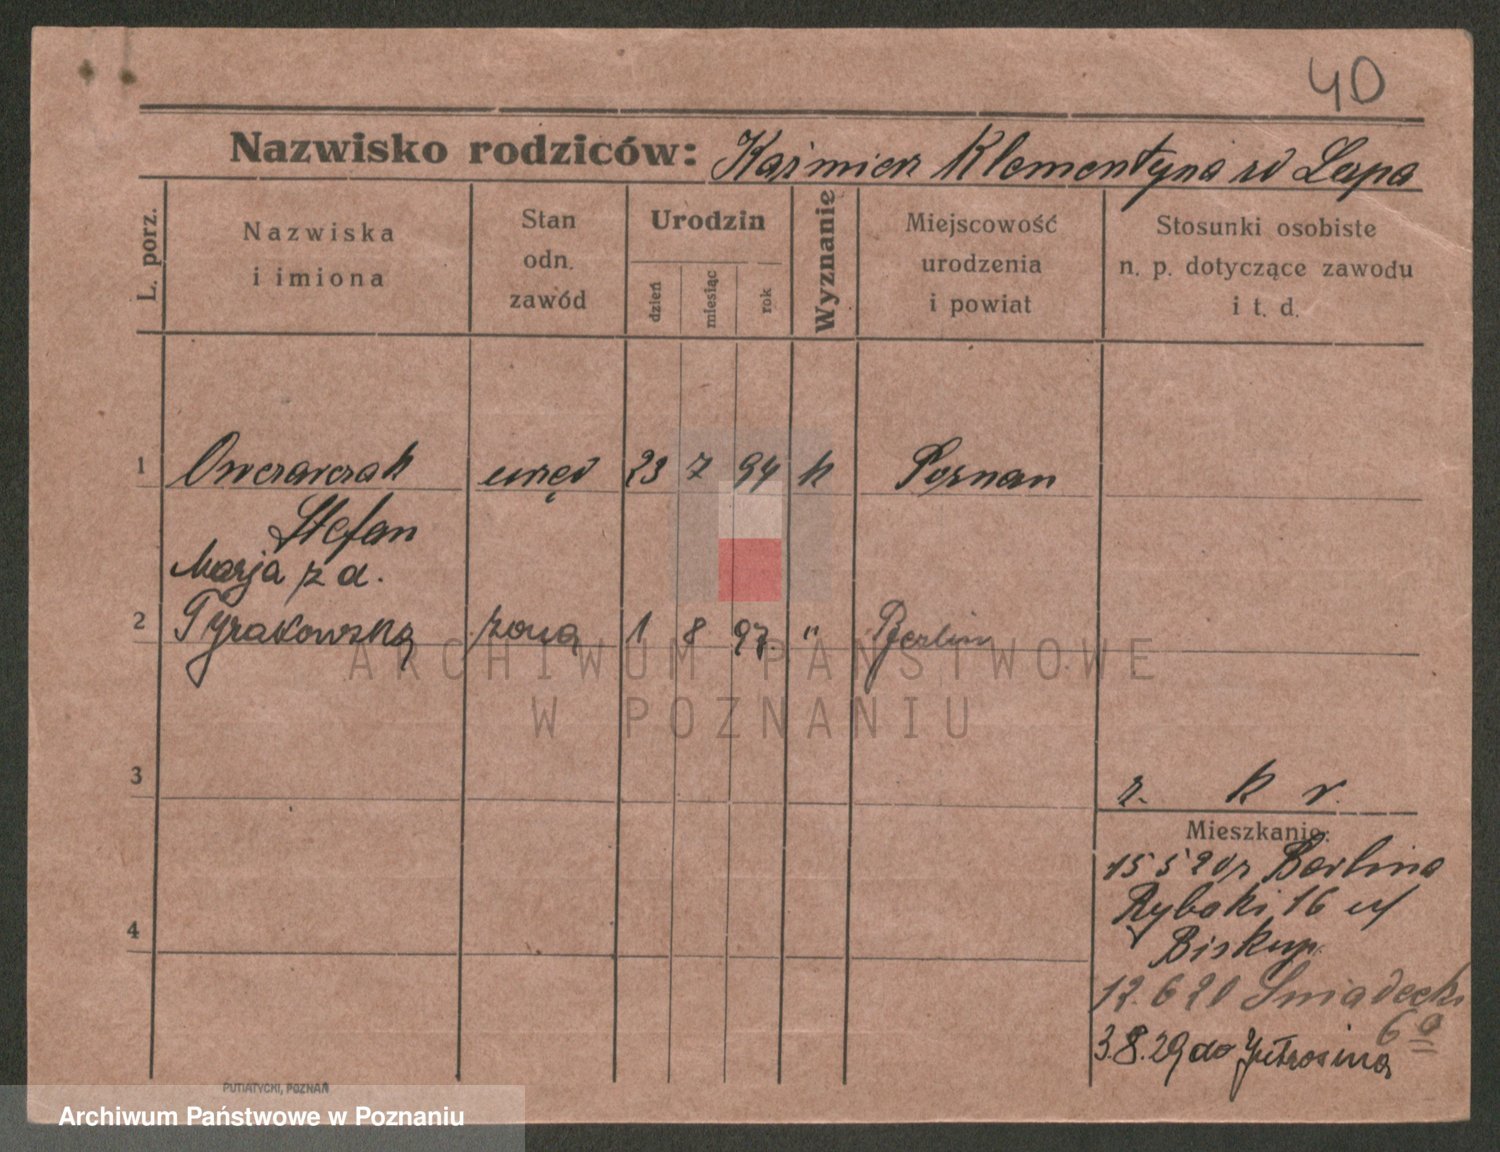 40
Nazwisko rodziców: Kaźmierz Klementyna rd Lespa
L. porz.
Nazwiska i imiona
Stan odn. zawód
Urodzin
dzień
miesiąc
rok
Wyznanie
Miejscowość urodzenia i powiat
Stosunki osobiste n. p. dotyczące zawodu i t. d.
1 Owczarczak urzęd 23 7 94 k Poznan
Stefan
Marja z d.
2 Tyrakowska żona 1 8 97. " Berlin
3
z. k r.
Mieszkanie:
15 5 20 z Berlina
Rybaki 16 u/
Biskup.
4
12.6 20 Sniadecki
6a
3.8.29 do Jutrosina
PUTIATYCKI, POZNAŃ
ARCHIWUM PAŃSTWOWE
W POZNANIU
Archiwum Państwowe w Poznaniu